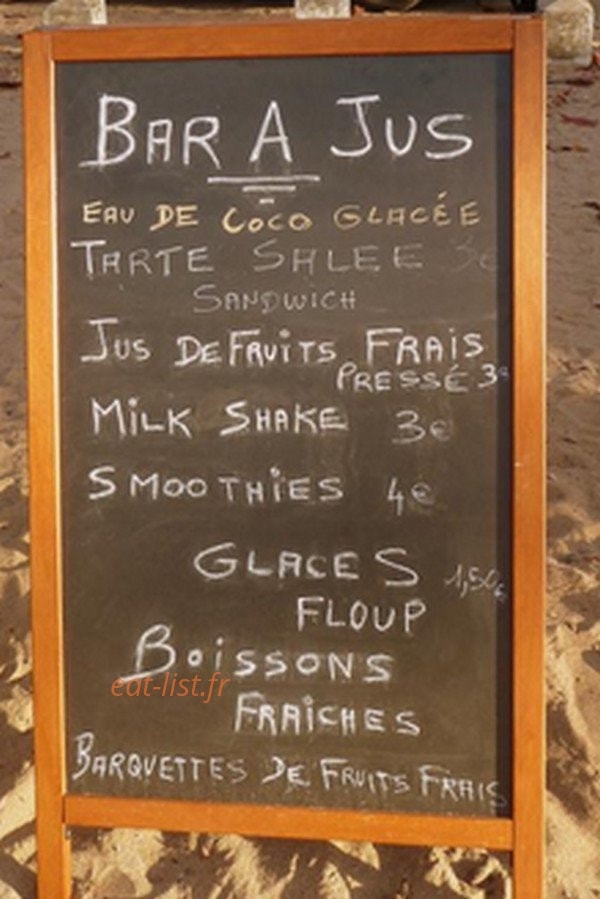 BAR A JUS
EAU DE COCO GLACÉE
TARTE SALEE 3€
SANDWICH
JUS DE FRUITS FRAIS
PRESSÉ 3€
MILK SHAKE 3€
SMOOTHIES 4€
GLACES 1,50€
FLOUP
BOISSONS
eat-list.fr
FRAICHES
BARQUETTES DE FRUITS FRAIS